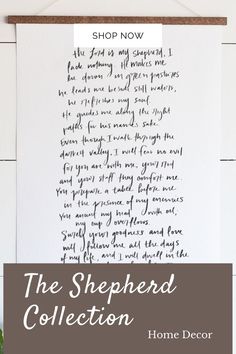 SHOP NOW
the Lord is my shepherd, I
lack nothing. He makes me
lie down in green pastures
he leads me beside still waters,
he refreshes my soul.
He guides me along the right
paths for his name's sake.
Even though I walk through the
darkest valley, I will fear no evil
for you are with me, your rod
and your staff they comfort me.
You prepare a table before me
in the presence of my enemies
You anoint my head with oil,
my cup overflows.
Surely your goodness and love
will follow me all the days
of my life, and I will dwell in the
The Shepherd
Collection
Home Decor